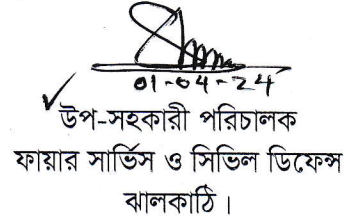 01-04-24
উপ-সহকারী পরিচালক
ফায়ার সার্ভিস ও সিভিল ডিফেন্স
ঝালকাঠি ।